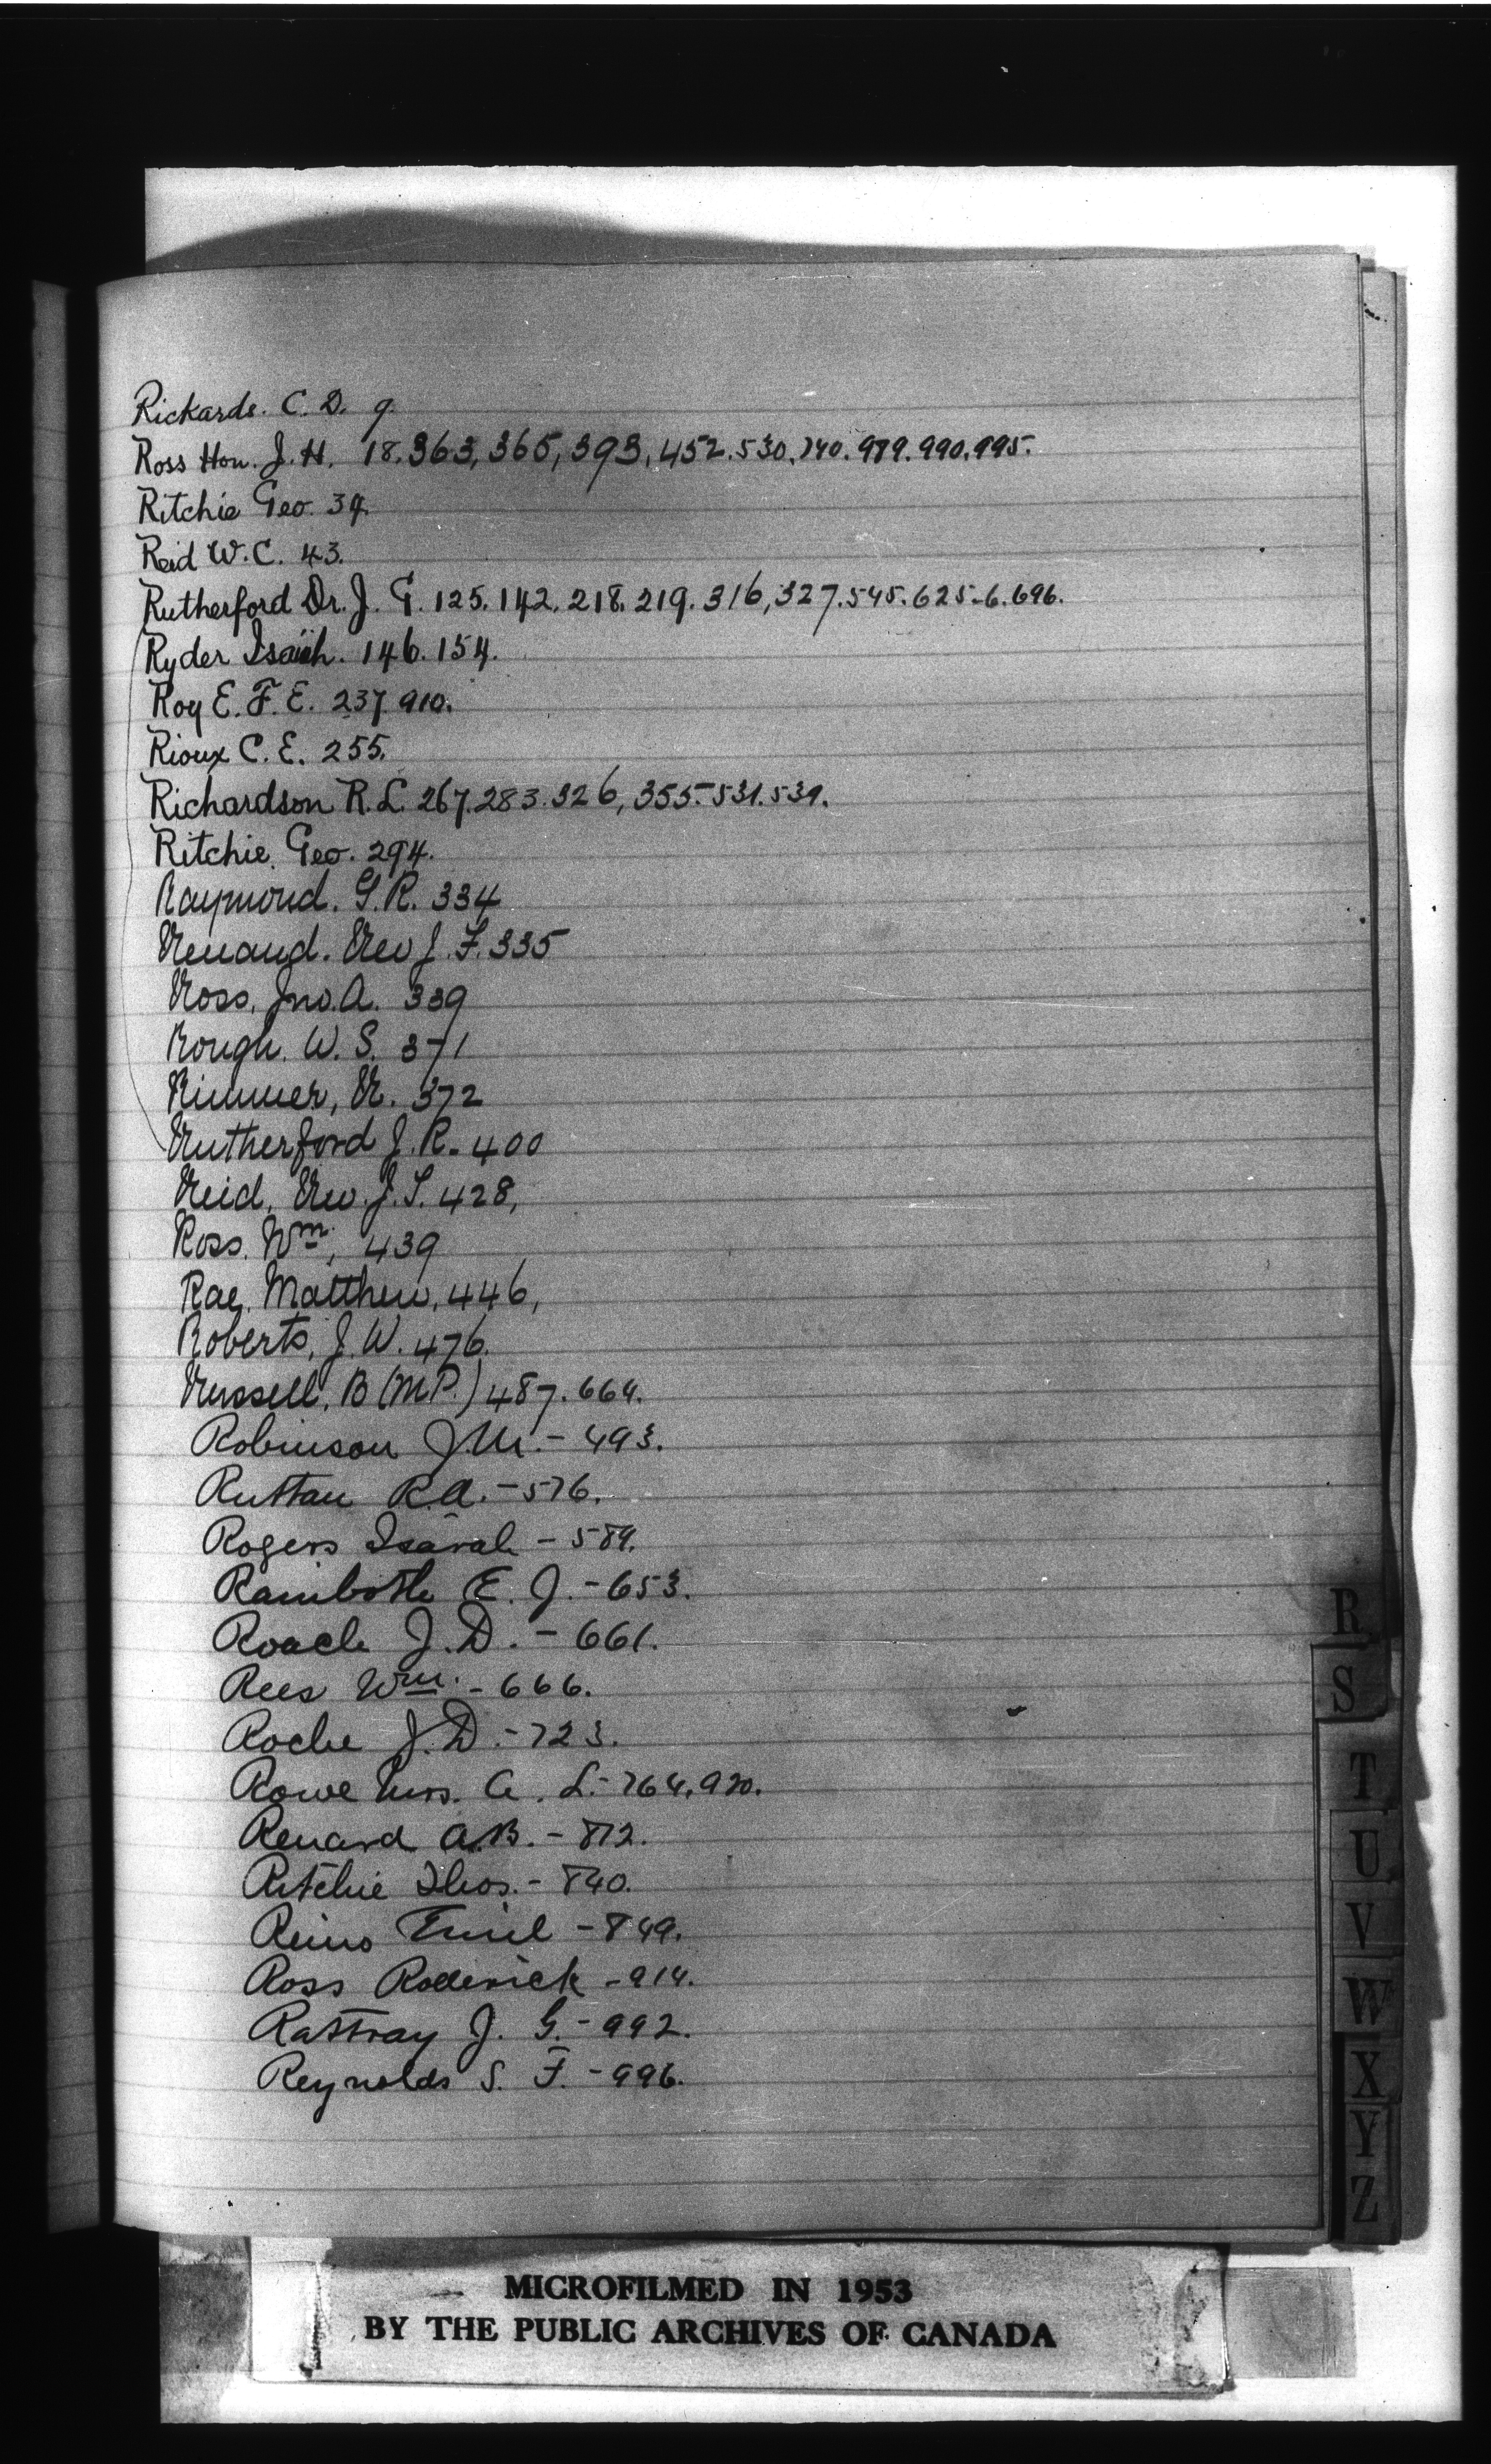 Rickards. C. D. 9.
Ross Hon. J. H. 18. 363, 365, 393, 452. 530. 740. 989. 990. 995.
Ritchie Geo. 34.
Reid W. C. 43.
Rutherford Dr. J. G. 125. 142. 218. 219. 316, 327. 545. 625-6. 696.
Ryder Isaiah. 146. 154.
Roy E. F. E. 237. 910.
Rioux C. E. 255.
Richardson R. L. 267. 283. 326, 355. 531. 539.
Ritchie. Geo. 294.
Raymond. G. R. 334
Renaud. Rev J. F. 335
Ross, Jno. A. 339
Rough. W. S. 371
Rimmer, R. 372
Rutherford J. R. 400
Reid, Rev. J. S. 428,
Ross. Wm. 439
Rae, Matthew, 446,
Roberts, J. W. 476.
Russell, B (M.P.) 487. 664.
Robinson J. M. - 493.
Ruttan R. A. - 576.
Rogers - 584.
E. J. - 653.
Roach J. D. - 661.
Rees Wm. - 666.
Roche J. D. - 723.
Rowe Mrs. A. L. - 764, 920.
Renard A. B. - 812.
Ritchie Thos. - 840.
Emil - 849.
Ross Roderick - 914.
Rattray J. G. - 992.
Reynolds S. F. - 996.
R
S
T
U
V
W
X
Y
Z
MICROFILMED IN 1953
BY THE PUBLIC ARCHIVES OF CANADA